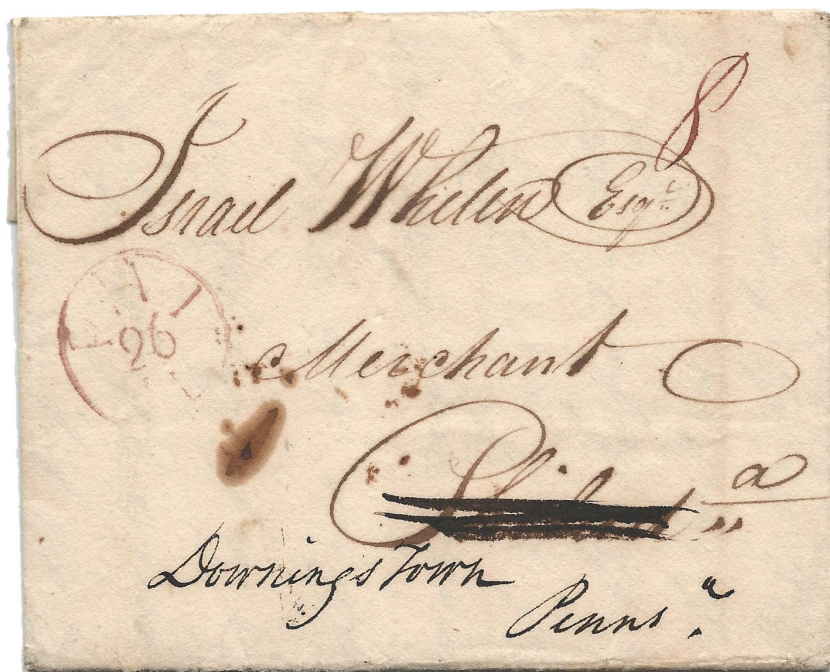 8
Israel Whelen Esqr.
26
Merchant
Philad"a
Downings Town
Pennsa.